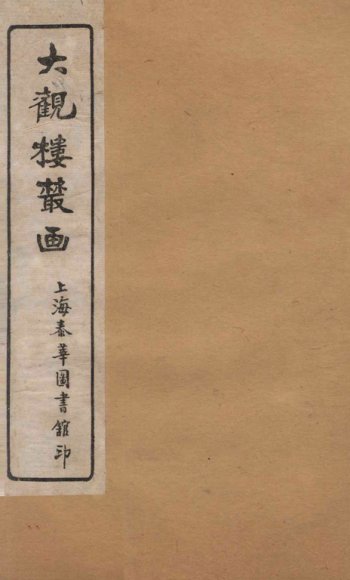 大觀樓叢画
上海泰華圖書館印